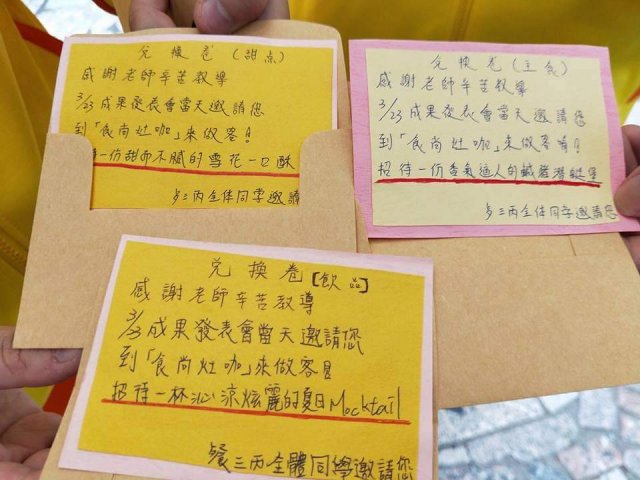 兌換卷(甜点)
感謝老師辛苦教導
3/23成果发表會當天邀請您
到「食尚灶咖」來做客!
一份甜而不膩的雪花一口酥
三丙全体同学邀請
兌換卷(主食)
感謝老師辛苦教導
3/23成果发表會當天邀請您
到「食尚灶咖」來做客唷!
招待一份香氣逼人的鹹豬潛艇堡
三丙全体同学邀請您
兌換卷[飲品]
感謝老師辛苦教導
3/23成果發表會當天邀請您
到「食尚灶咖」來做客
招待一杯沁涼炫麗的夏日Mocktail
餐三丙全體同學邀請您